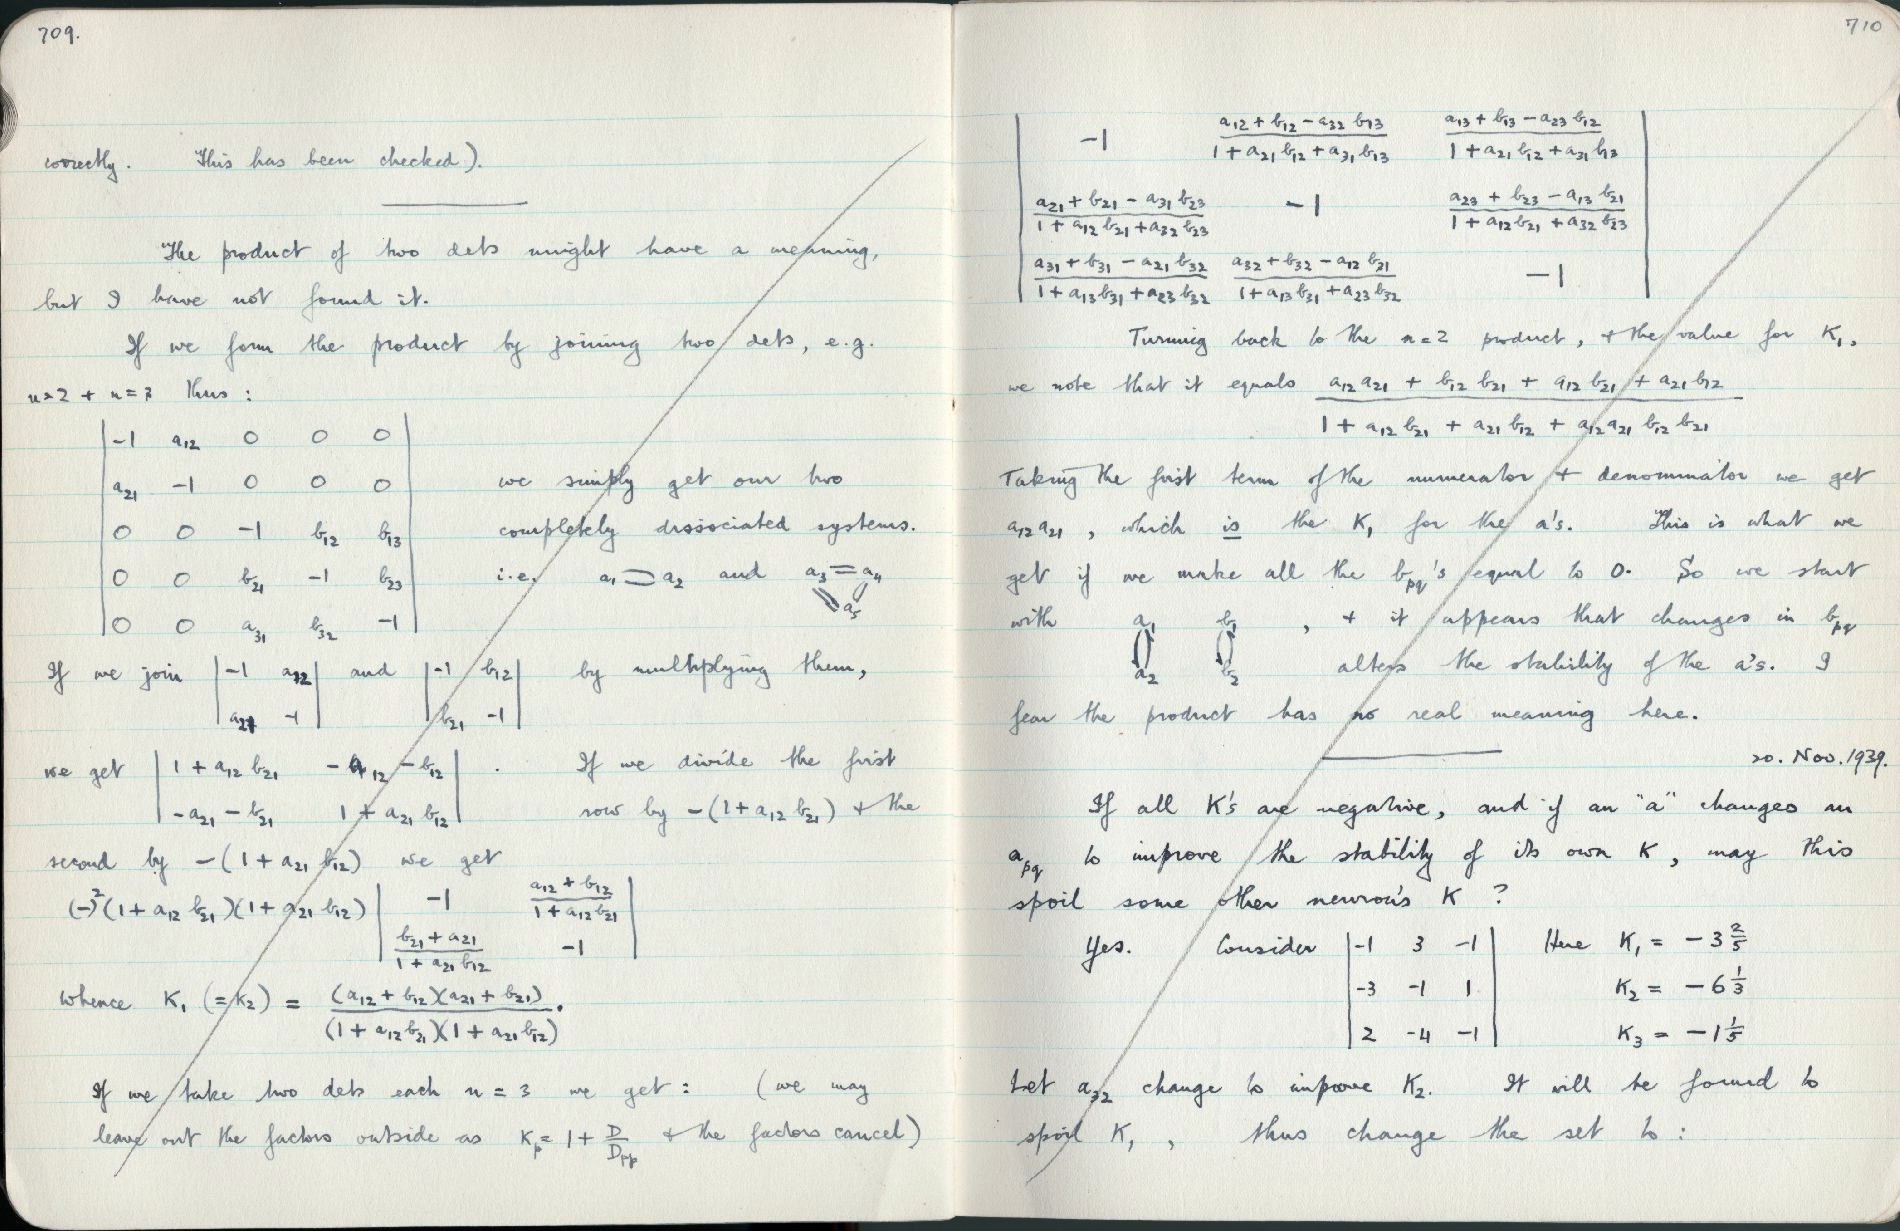 709.
correctly. This has been checked).
The product of two dets might have a meaning,
but I have not found it.
If we form the product by joining two dets, e.g.
n=2 + n=3 thus :
-1 a12 0 0 0
a21 -1 0 0 0 we simply get our two
0 0 -1 b12 b13 completely dissociated systems.
0 0 b21 -1 b23 i.e. a1 a2 and a3 a4
0 0 a31 b32 -1 a5
If we join | -1 a12 | and | -1 b12 | by multiplying them,
| a21 -1 | | b21 -1 |
we get | 1 + a12 b21 - a12 - b12 | . If we divide the first
| - a21 - b21 1 + a21 b12 | row by -(1 + a12 b21) + the
second by -(1 + a21 b12) we get
(-)²(1 + a12 b21)(1 + a21 b12) | -1 (a12 + b12)/(1 + a12 b21) |
| (b21 + a21)/(1 + a21 b12) -1 |
Whence K1 (=K2) = (a12 + b12)(a21 + b21) / (1 + a12 b21)(1 + a21 b12) .
If we take two dets each n = 3 we get : (we may
leave out the factors outside as Kp = 1 + D/Dpp + the factors cancel)
710
| -1 (a12 + b12 - a32 b13)/(1 + a21 b12 + a31 b13) (a13 + b13 - a23 b12)/(1 + a21 b12 + a31 b13) |
| (a21 + b21 - a31 b23)/(1 + a12 b21 + a32 b23) -1 (a23 + b23 - a13 b21)/(1 + a12 b21 + a32 b23) |
| (a31 + b31 - a21 b32)/(1 + a13 b31 + a23 b32) (a32 + b32 - a12 b21)/(1 + a13 b31 + a23 b32) -1 |
Turning back to the n=2 product, + the value for K1,
we note that it equals a12 a21 + b12 b21 + a12 b21 + a21 b12
1 + a12 b21 + a21 b12 + a12 a21 b12 b21
Taking the first term of the numerator + denominator we get
a12 a21 , which is the K1 for the a's. This is what we
get if we make all the bpq's equal to 0. So we start
with a1 b1 , + it appears that changes in bpq
a2 b2 alters the stability of the a's. I
fear the product has no real meaning here.
20. Nov. 1939.
If all K's are negative, and if an "a" changes an
apq to improve the stability of its own K, may this
spoil some other neuron's K ?
Yes. Consider | -1 3 -1 | Here K1 = -3 2/5
| -3 -1 1 | K2 = -6 1/3
| 2 -4 -1 | K3 = -1 1/5
Let a32 change to improve K2. It will be found to
spoil K1 , thus change the set to :